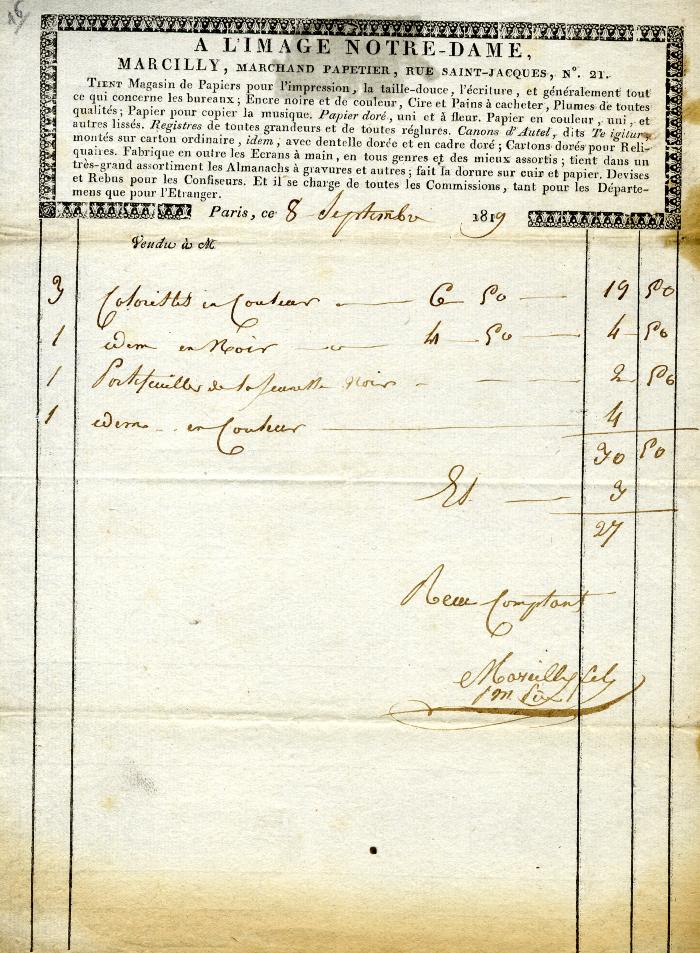 16
A L'IMAGE NOTRE-DAME,
MARCILLY, MARCHAND PAPETIER, RUE SAINT-JACQUES, N°. 21.
TIENT Magasin de Papiers pour l'impression, la taille-douce, l'écriture, et généralement tout
ce qui concerne les bureaux; Encre noire et de couleur, Cire et Pains à cacheter, Plumes de toutes
qualités; Papier pour copier la musique. Papier doré, uni et à fleur. Papier en couleur, uni, et
autres lissés. Registres de toutes grandeurs et de toutes réglures. Canons d'Autel, dits Te igitur,
montés sur carton ordinaire, idem, avec dentelle dorée et en cadre doré; Cartons dorés pour Reli-
quaires. Fabrique en outre les Ecrans à main, en tous genres et des mieux assortis; tient dans un
très-grand assortiment les Almanachs à gravures et autres; fait la dorure sur cuir et papier. Devises
et Rebus pour les Confiseurs. Et il se charge de toutes les Commissions, tant pour les Départe-
mens que pour l'Etranger.
Paris, ce 8 Septembre 1819
Vendu à M
3 en Couleur 6 50 19 50
1 idem en Noir 4 50 4 50
1 Portefeuilles de la Jeunesse Noir 2 50
1 idem en Couleur 4
30 50
3
27
Recu Comptant
Marcilly